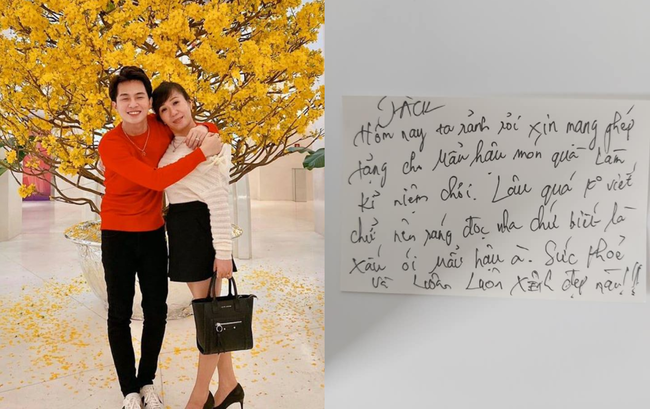 JACK
Hôm nay ta rảnh rỗi xin mang ghép
tặng cho mẫu hậu món quà làm
kỉ niệm chơi. Lâu quá ko viết
chữ nên ráng đọc nha chứ biết là
xấu ói mẫu hậu à. Sức khoẻ
và luôn luôn xinh đẹp nàu!!!